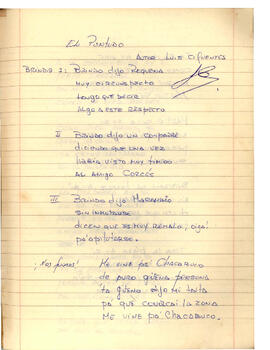 EL PUNTUDO
AUTOR: LUIS CIFUENTES
BRINDIS I: BRINDO DIJO REQUENA
MUY CIRCUNSPECTO
TENGO QUE DECIR
ALGO A ESTE RESPECTO
II BRINDO DIJO UN COMPADRE
DICIENDO QUE UNA VEZ
HABÍA VISTO MUY TIMIDO
AL AMIGO CORTÉS
III BRINDO DIJO MARAMBIO
SIN INMUTARSE
DICEN QUE ES MUY REMALO, OIGA!
PA'
¡NOS FUIMOS! ME VINE PA' CHACABUCO
DE PURO GÜENA PERSONA
TA GÜENO DIJO MI TAITA
PA' QUÉ CONOZCAI LA ZONA
ME VINE PA' CHACABUCO.